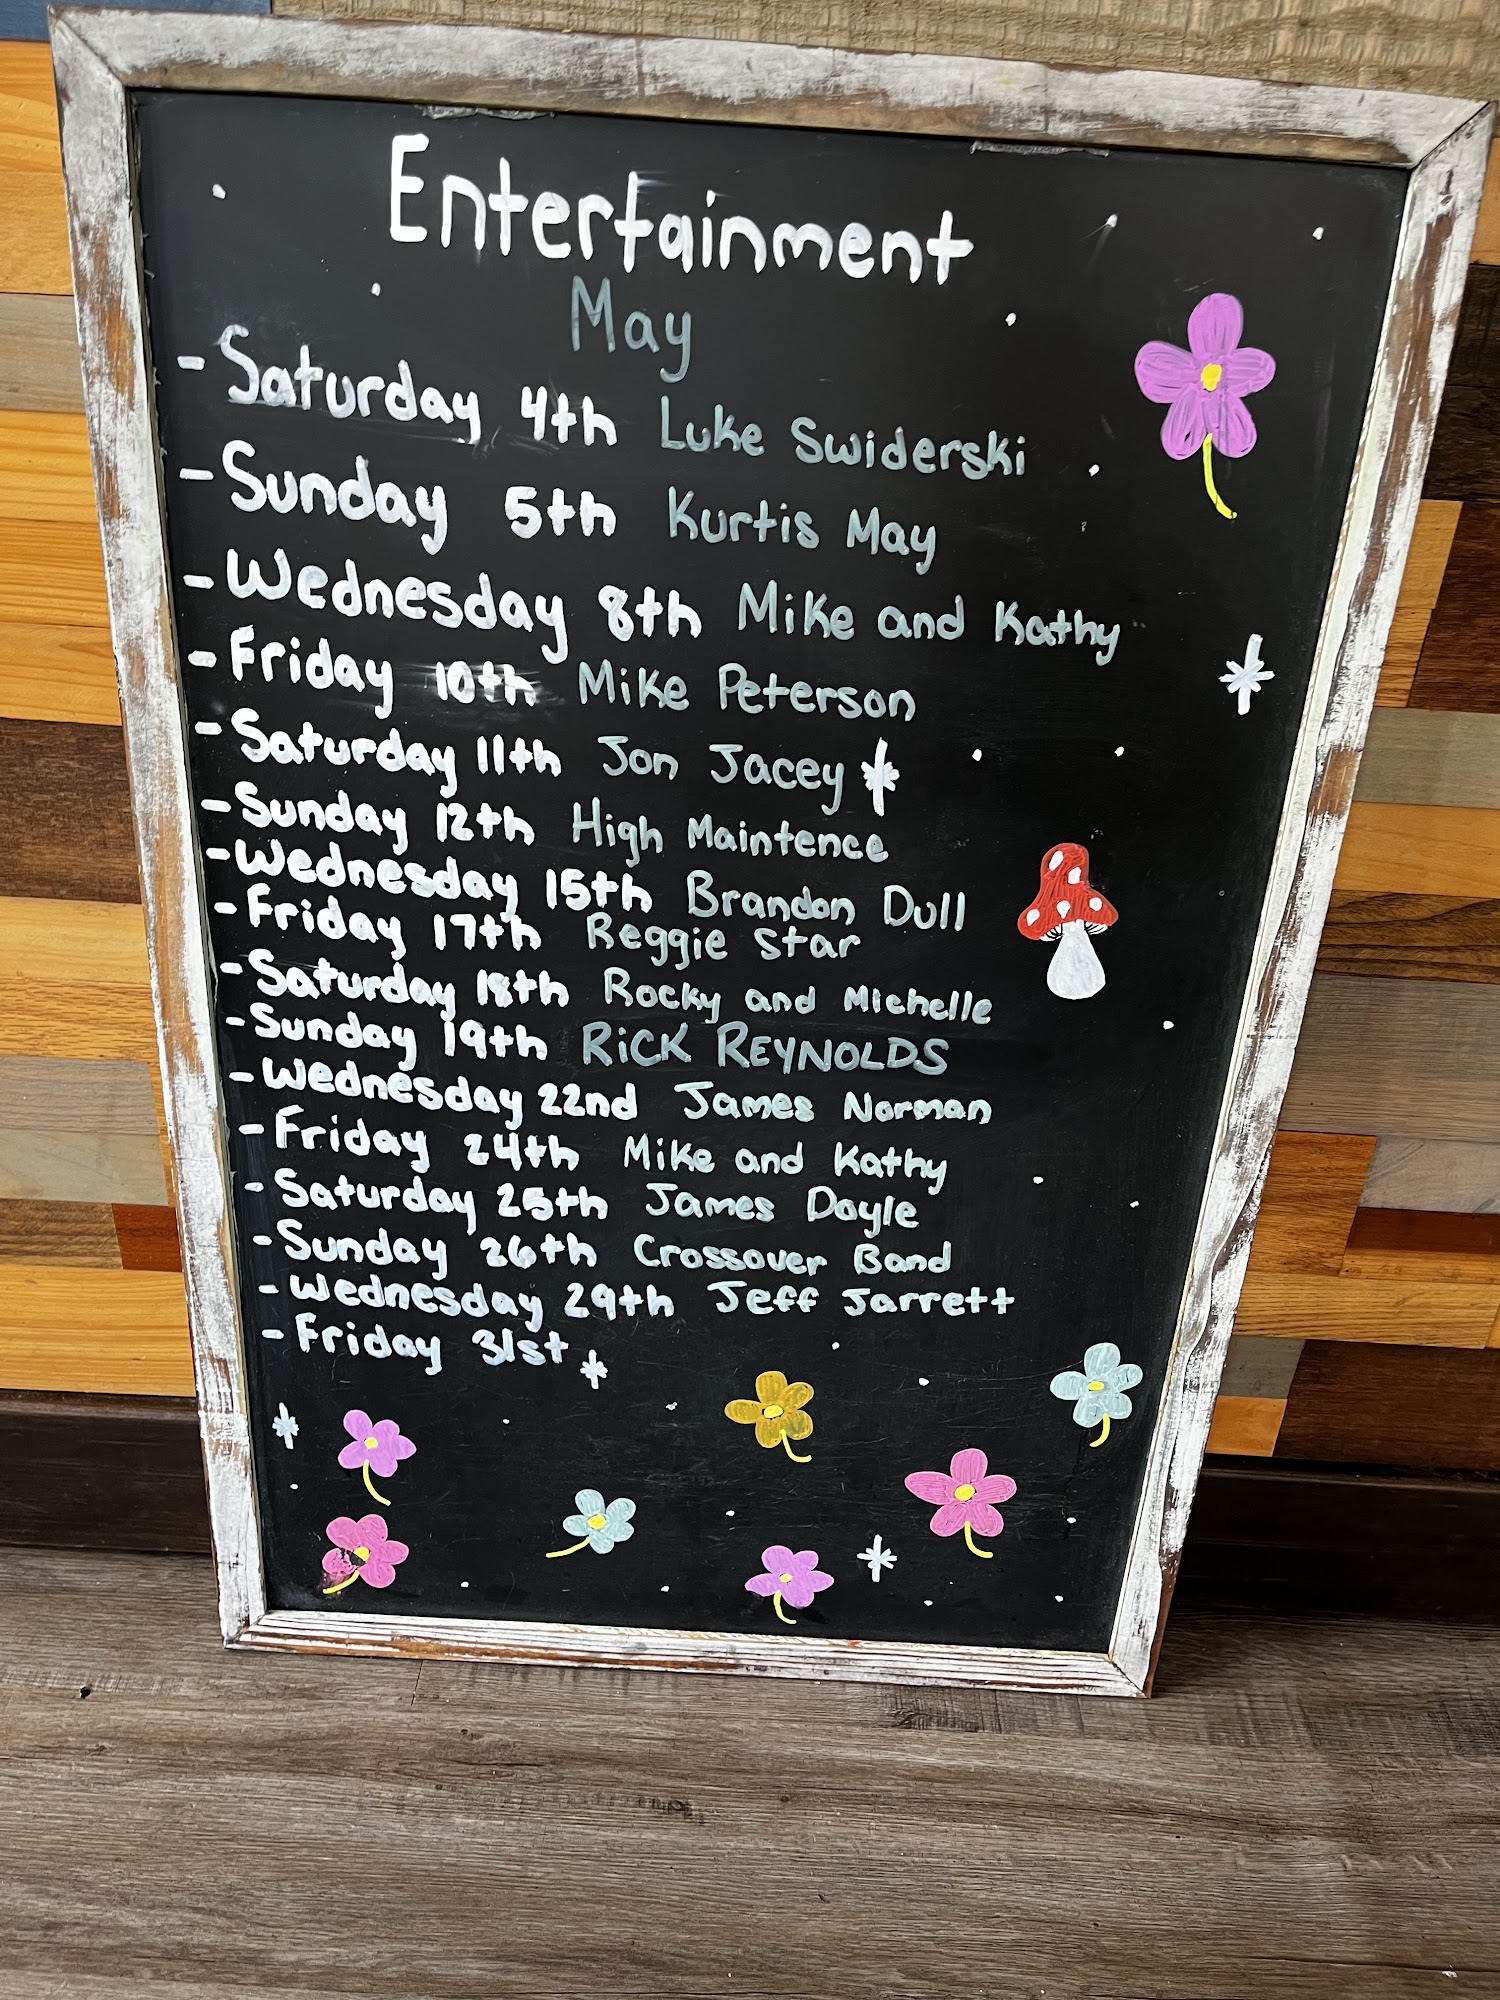 Entertainment
May
- Saturday 4th Luke Swiderski
- Sunday 5th Kurtis May
- Wednesday 8th Mike and Kathy
- Friday 10th Mike Peterson
- Saturday 11th Jon Jacey
- Sunday 12th High Maintence
- Wednesday 15th Brandon Dull
- Friday 17th Reggie Star
- Saturday 18th Rocky and Michelle
- Sunday 19th RiCK REYNOLDS
- Wednesday 22nd James Norman
- Friday 24th Mike and Kathy
- Saturday 25th James Doyle
- Sunday 26th Crossover Band
- Wednesday 29th Jeff Jarrett
- Friday 31st